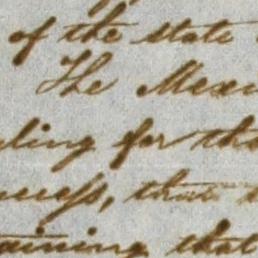 of the state
The Mexi
ling for tho
ness, that
taining that